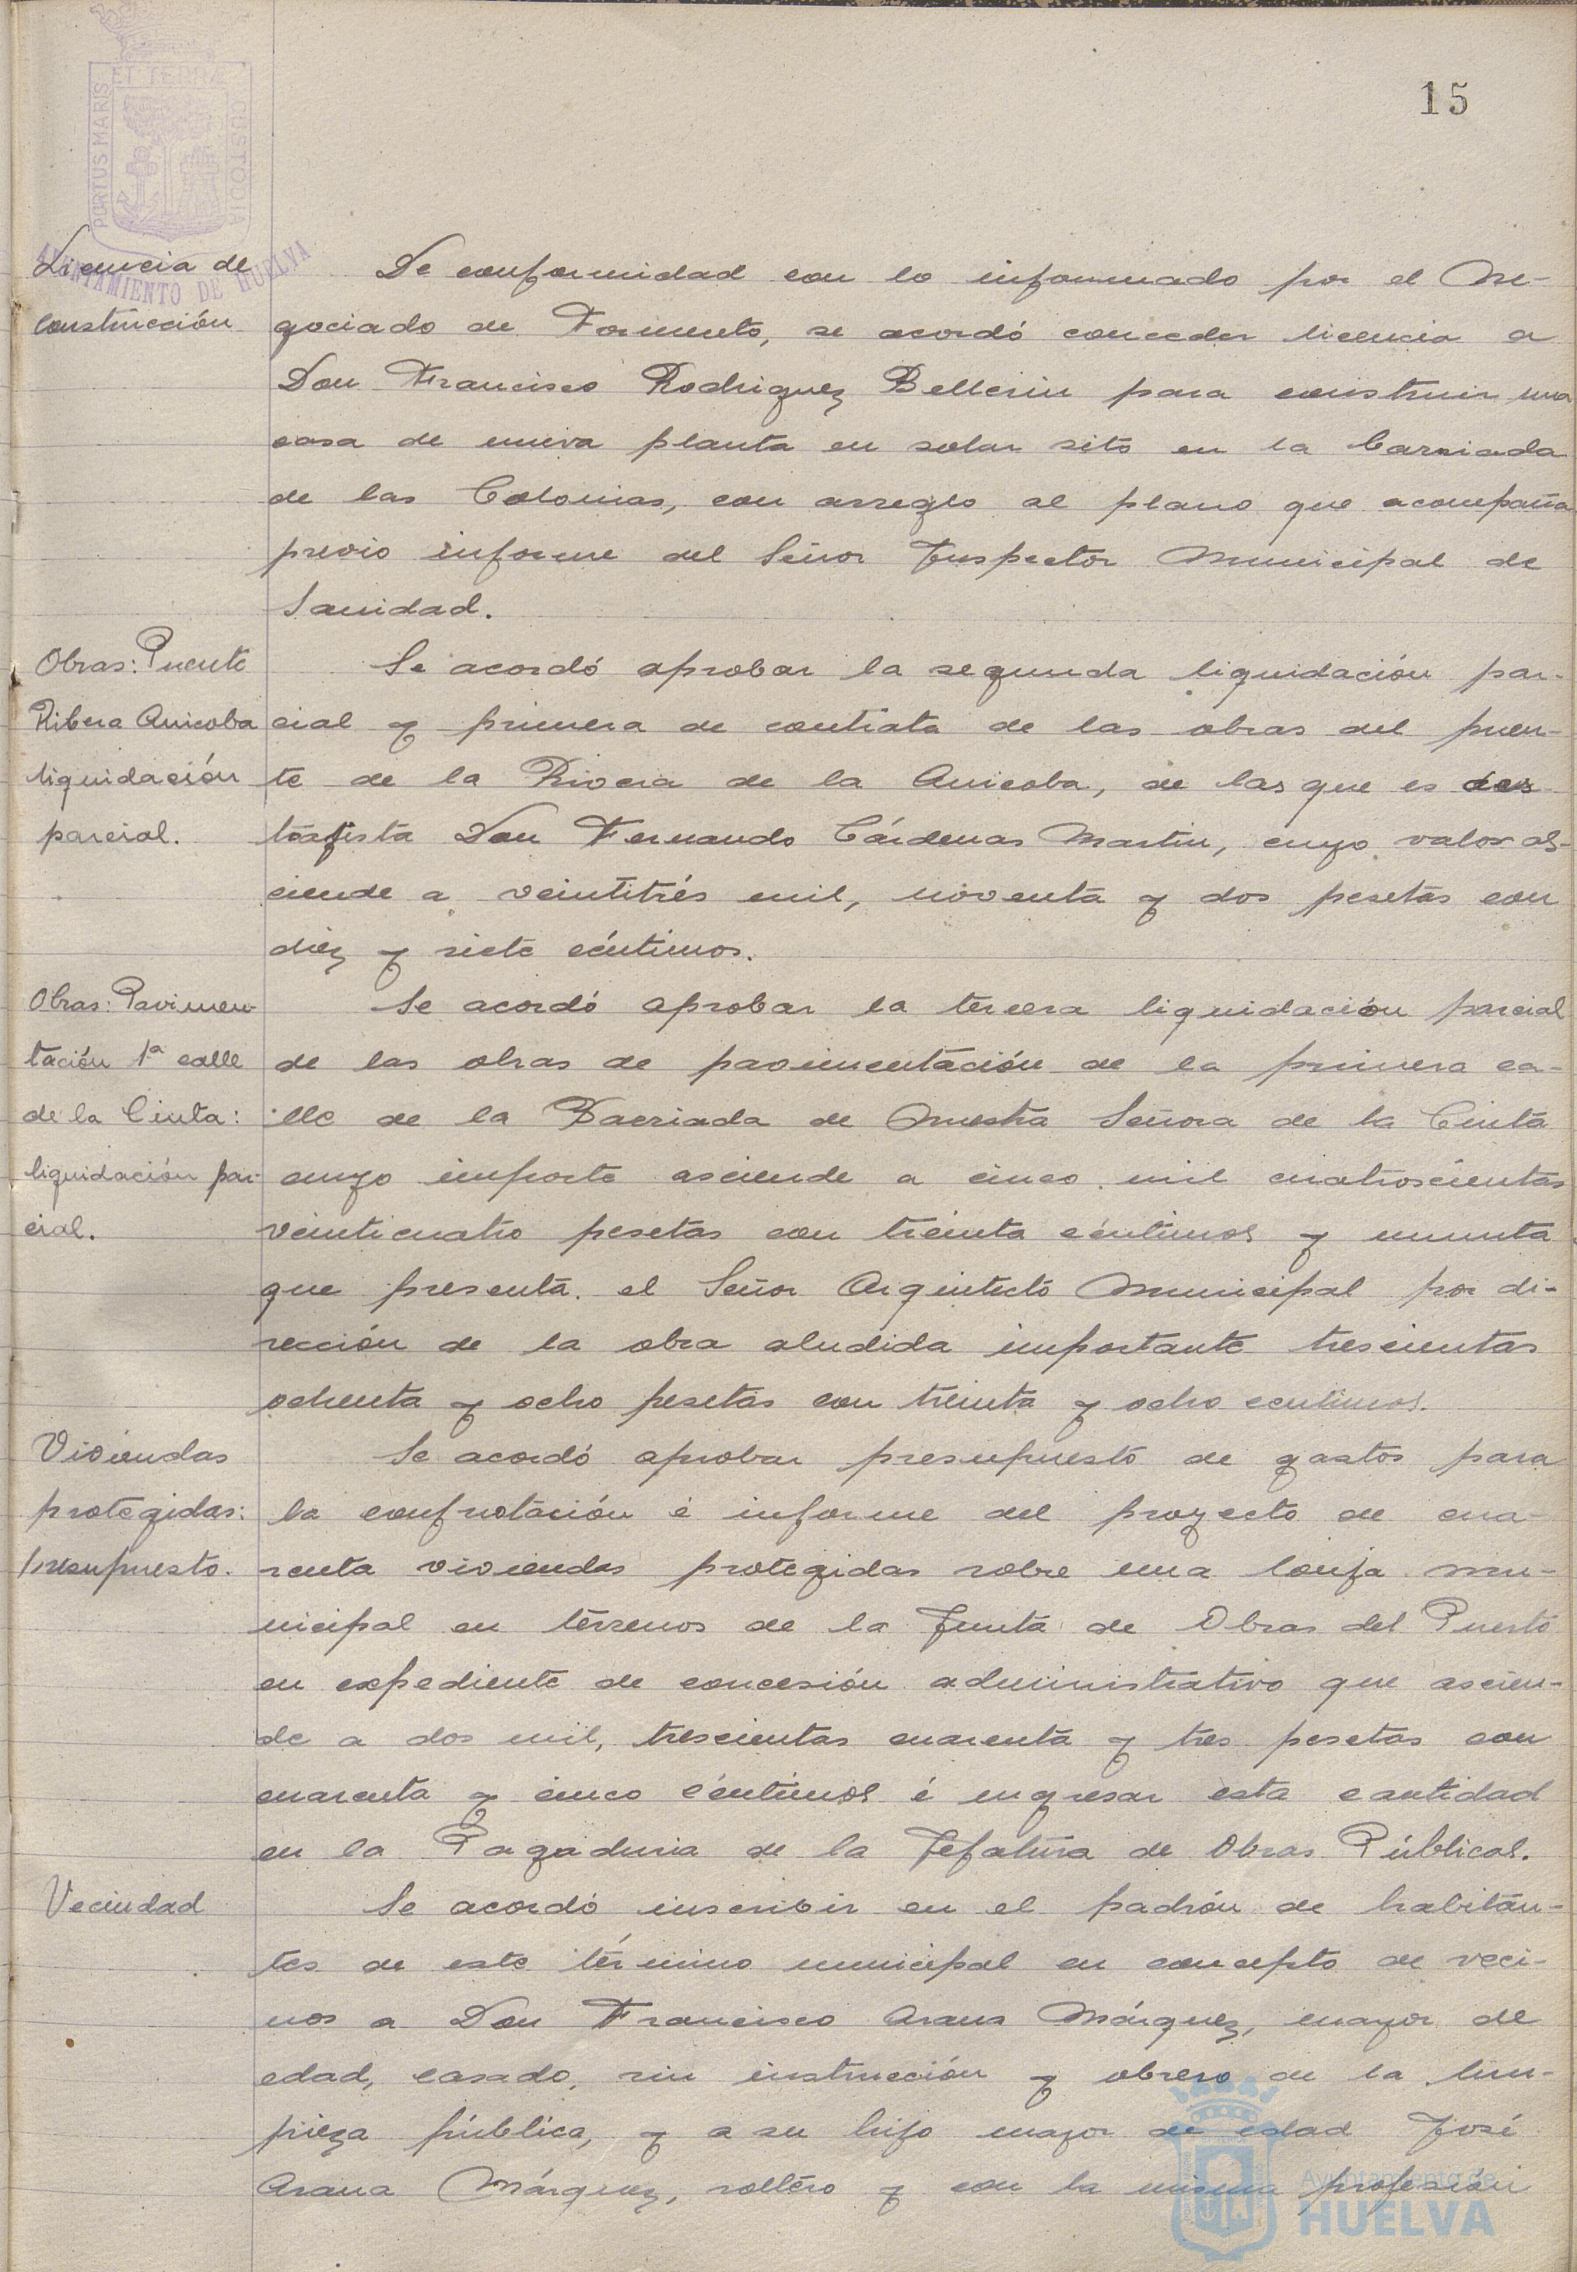 15
PORTUS MARIS ET TERRAE CUSTODIA
AYUNTAMIENTO DE HUELVA
Licencia de
construcción
De conformidad con lo informado por el Ne-
gociado de Fomento, se acordó conceder licencia a
Don Francisco Rodriguez Bellerin para construir una
casa de nueva planta en solar sito en la barriada
de las Colonias, con arreglo al plano que acompaña
previo informe del Señor Inspector Municipal de
Sanidad.
Obras: Puente
Ribera Anicoba
liquidación
parcial.
Se acordó aprobar la segunda liquidación par-
cial y primera de contrata de las obras del puen-
te de la Rivera de la Anicoba, de las que es des-
tajista Don Fernando Cárdenas Martin, cuyo valor as-
ciende a veintitrés mil, noventa y dos pesetas con
diez y siete céntimos.
Obras: Pavimen-
tación 1ª calle
de la Cinta:
liquidación par-
cial.
Se acordó aprobar la tercera liquidación parcial
de las obras de pavimentación de la primera ca-
lle de la Barriada de Nuestra Señora de la Cinta
cuyo importe asciende a cinco mil cuatroscientas
veinticuatro pesetas con treinta céntimos y minuta
que presenta el Señor Arquitecto Municipal por di-
rección de la obra aludida importante trescientas
ochenta y ocho pesetas con treinta y ocho centimos.
Viviendas
protegidas:
presupuesto.
Se acordó aprobar presupuesto de gastos para
la confrotación é informe del proyecto de cua-
renta viviendas protegidas sobre una lonja mu-
nicipal en terrenos de la Junta de Obras del Puerto
en expediente de concesión administrativo que ascien-
de a dos mil, trescientas cuarenta y tres pesetas con
cuarenta y cinco céntimos é ingresar esta cantidad
en la Pagaduria de la Jefatura de Obras Públicas.
Vecindad
Se acordó inscribir en el padrón de habitan-
tes de este término municipal en concepto de veci-
nos a Don Francisco Arana Márquez, mayor de
edad, casado, sin instrucción y obrero de la lim-
pieza pública, y a su hijo mayor de edad José
Arana Márquez, soltero y con la misma profesión
Ayuntamiento de
HUELVA